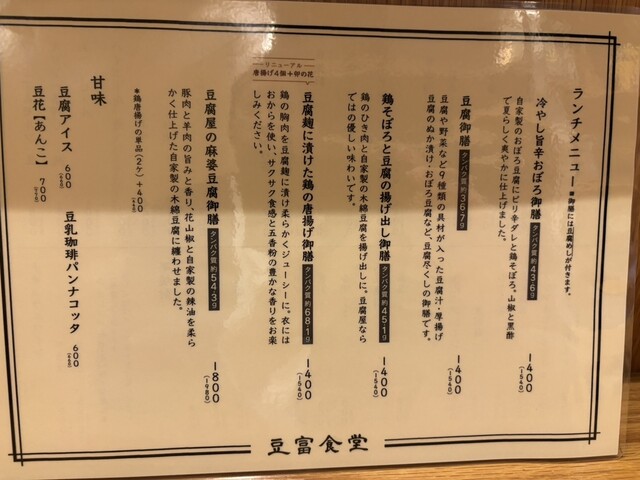 ランチメニュー ＊御膳には豆腐めしが付きます。
冷やし旨辛おぼろ御膳 タンパク質約43.6g 一400(1540)
自家製のおぼろ豆腐にピリ辛ダレと鶏そぼろ。山椒と黒酢
で夏らしく爽やかに仕上げました。
豆腐御膳 タンパク質約36.7g 一400(1540)
豆腐や野菜など9種類の具材が入った豆腐汁・厚揚げ
豆腐のぬか漬け・おぼろ豆腐など、豆腐尽くしの御膳です。
鶏そぼろと豆腐の揚げ出し御膳 タンパク質約45.1g 一400(1540)
鶏のひき肉と自家製の木綿豆腐を揚げ出しに。豆腐屋なら
ではの優しい味わいです。
リニューアル
唐揚げ4個+卯の花
豆腐麹に漬けた鶏の唐揚げ御膳 タンパク質約68.1g 一400(1540)
鶏の胸肉を豆腐麹に漬け柔らかくジューシーに。衣には
おからを使い、サクサク食感と五香粉の豊かな香りをお楽
しみください。
豆腐屋の麻婆豆腐御膳 タンパク質約54.3g 一800(1980)
豚肉と羊肉の旨みと香り、花山椒と自家製の辣油を柔ら
かく仕上げた自家製の木綿豆腐に纏わせました。
＊鶏唐揚げの単品(2ヶ)+400
甘味
豆腐アイス 600 豆乳珈琲パンナコッタ 600
豆花【あんこ】 700
豆富食堂